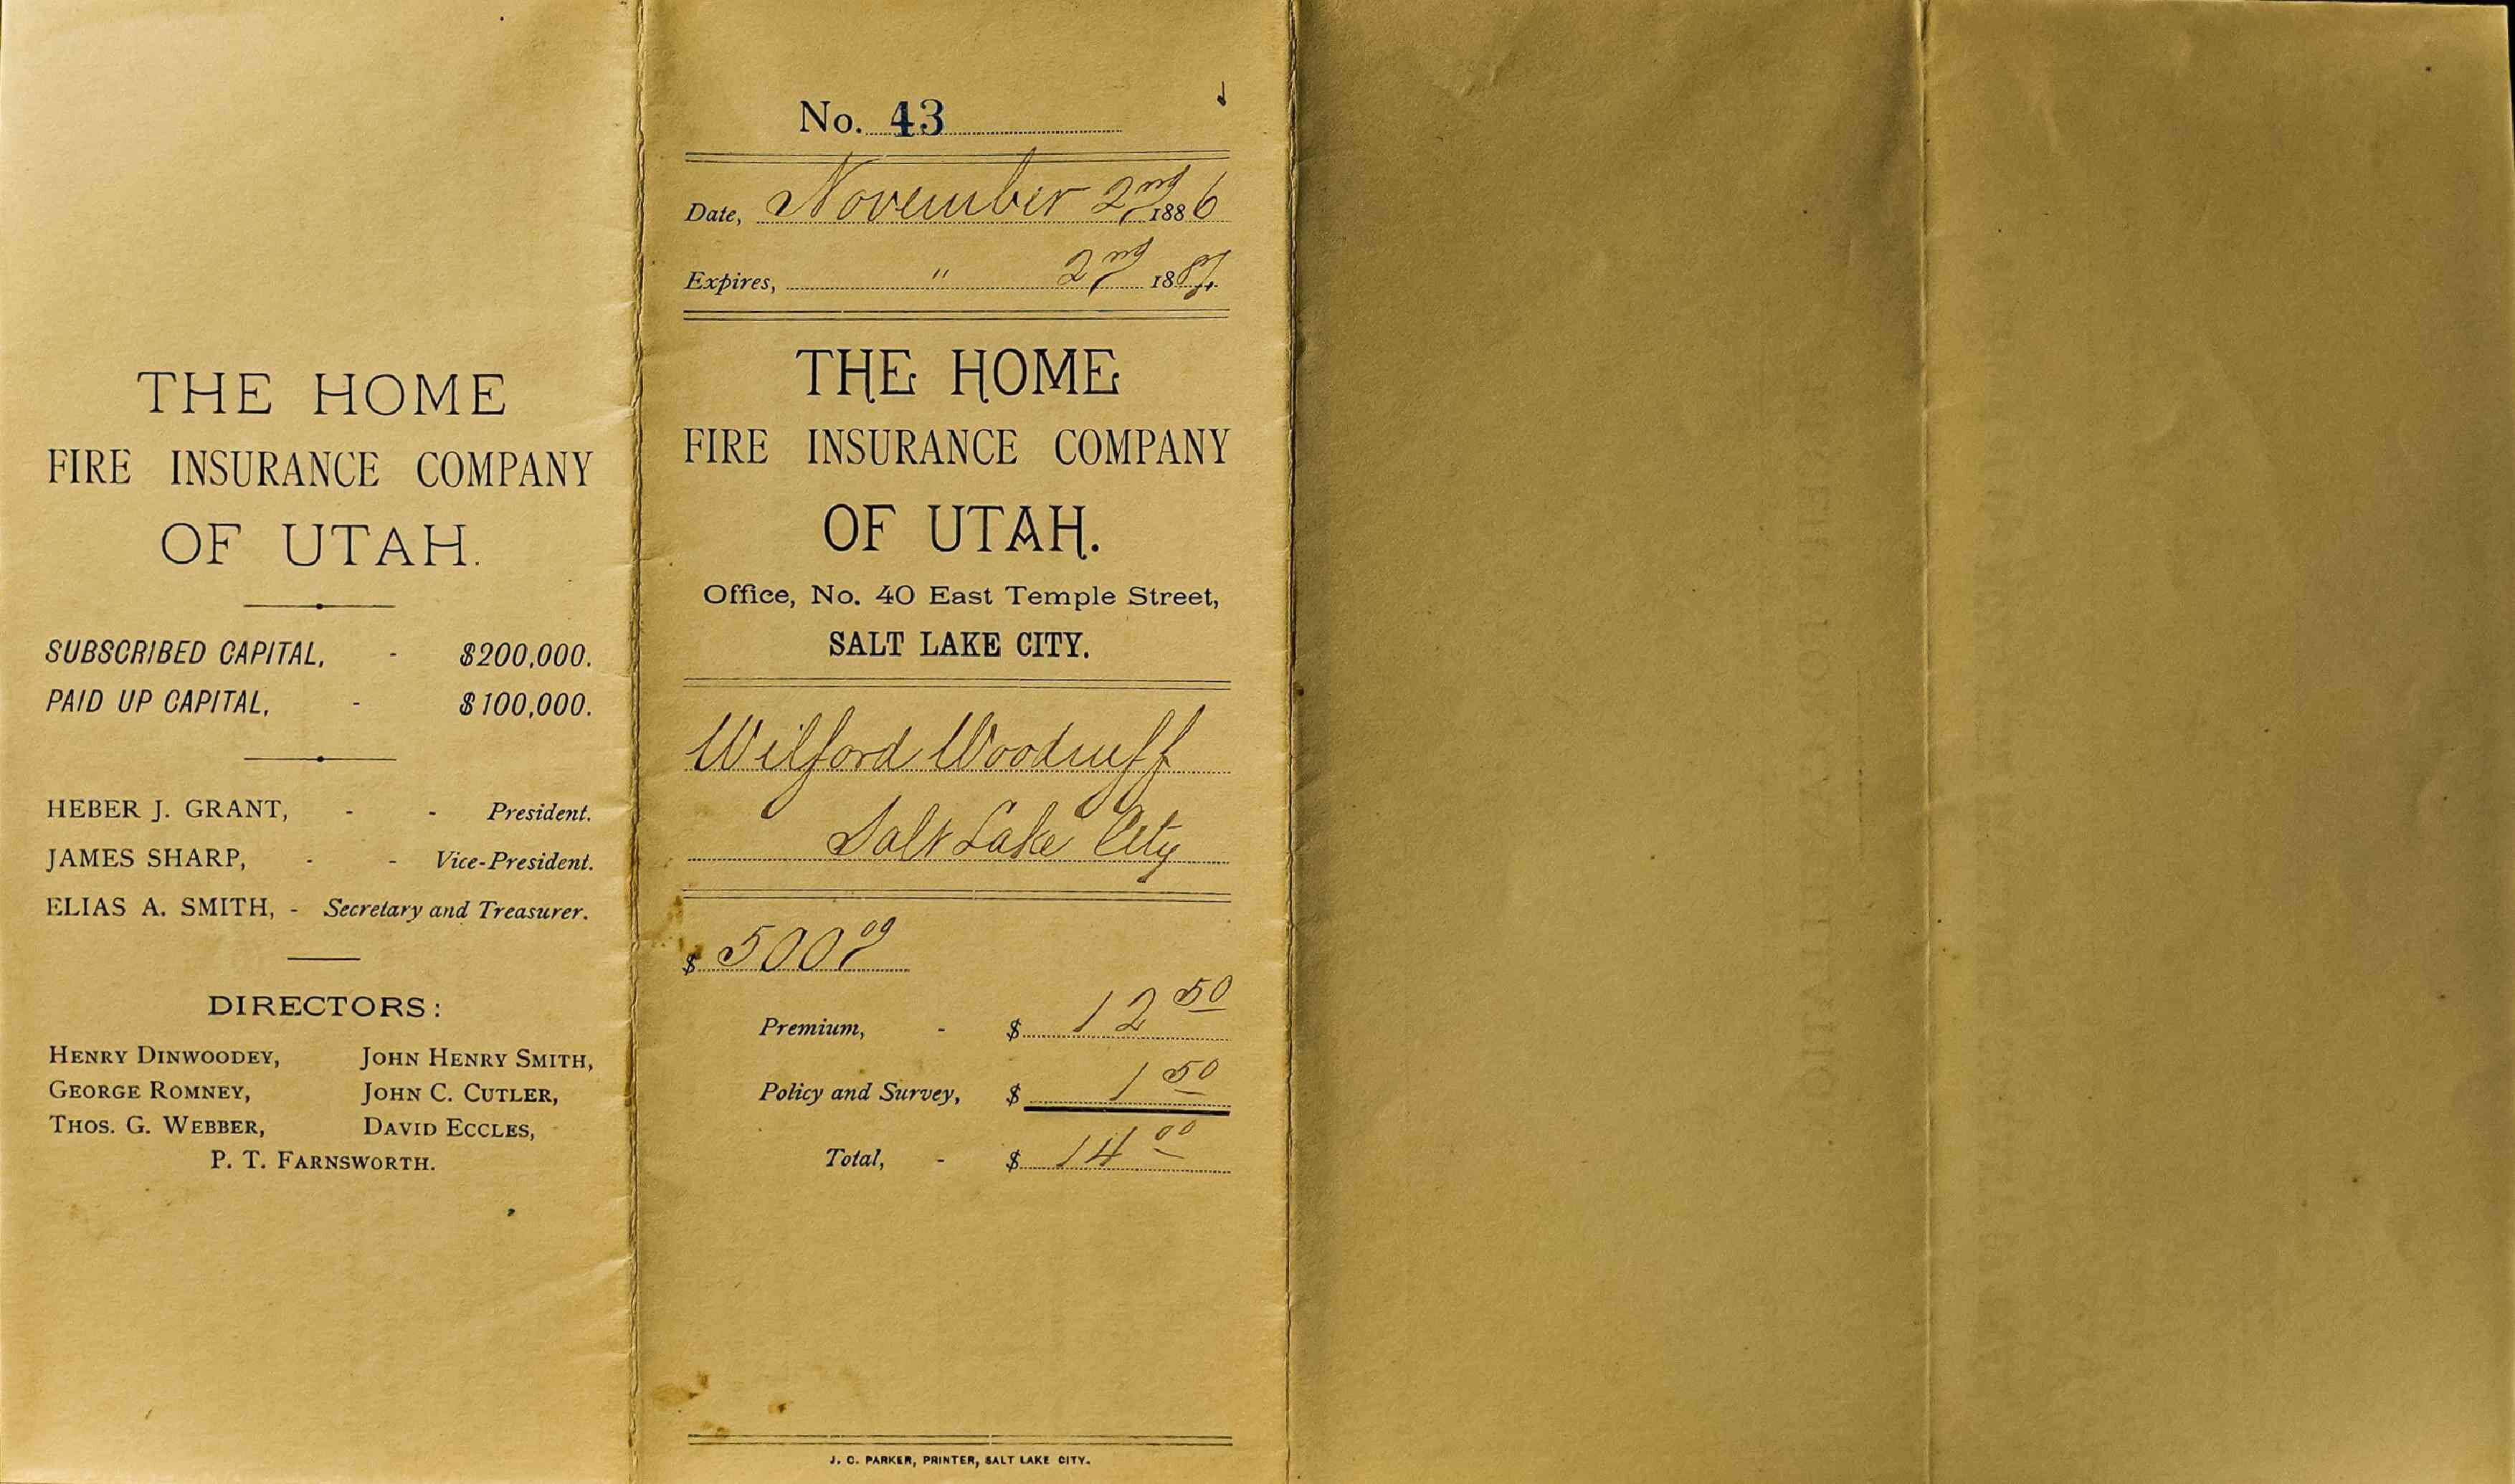 THE HOME
FIRE INSURANCE COMPANY
OF UTAH.
SUBSCRIBED CAPITAL, - $200,000.
PAID UP CAPITAL, - $100,000.
HEBER J. GRANT, - - President.
JAMES SHARP, - - Vice-President.
ELIAS A. SMITH, - Secretary and Treasurer.
DIRECTORS:
HENRY DINWOODEY, JOHN HENRY SMITH,
GEORGE ROMNEY, JOHN C. CUTLER,
THOS. G. WEBBER, DAVID ECCLES,
P. T. FARNSWORTH.
No. 43
Date, November 2nd 1886
Expires, " 2nd 1887.
THE HOME
FIRE INSURANCE COMPANY
OF UTAH.
Office, No. 40 East Temple Street,
SALT LAKE CITY.
Wilford Woodruff
Salt Lake City
$ 500 00
Premium, - $ 12 50
Policy and Survey, $ 1 50
Total, - $ 14 00
J. C. PARKER, PRINTER, SALT LAKE CITY.